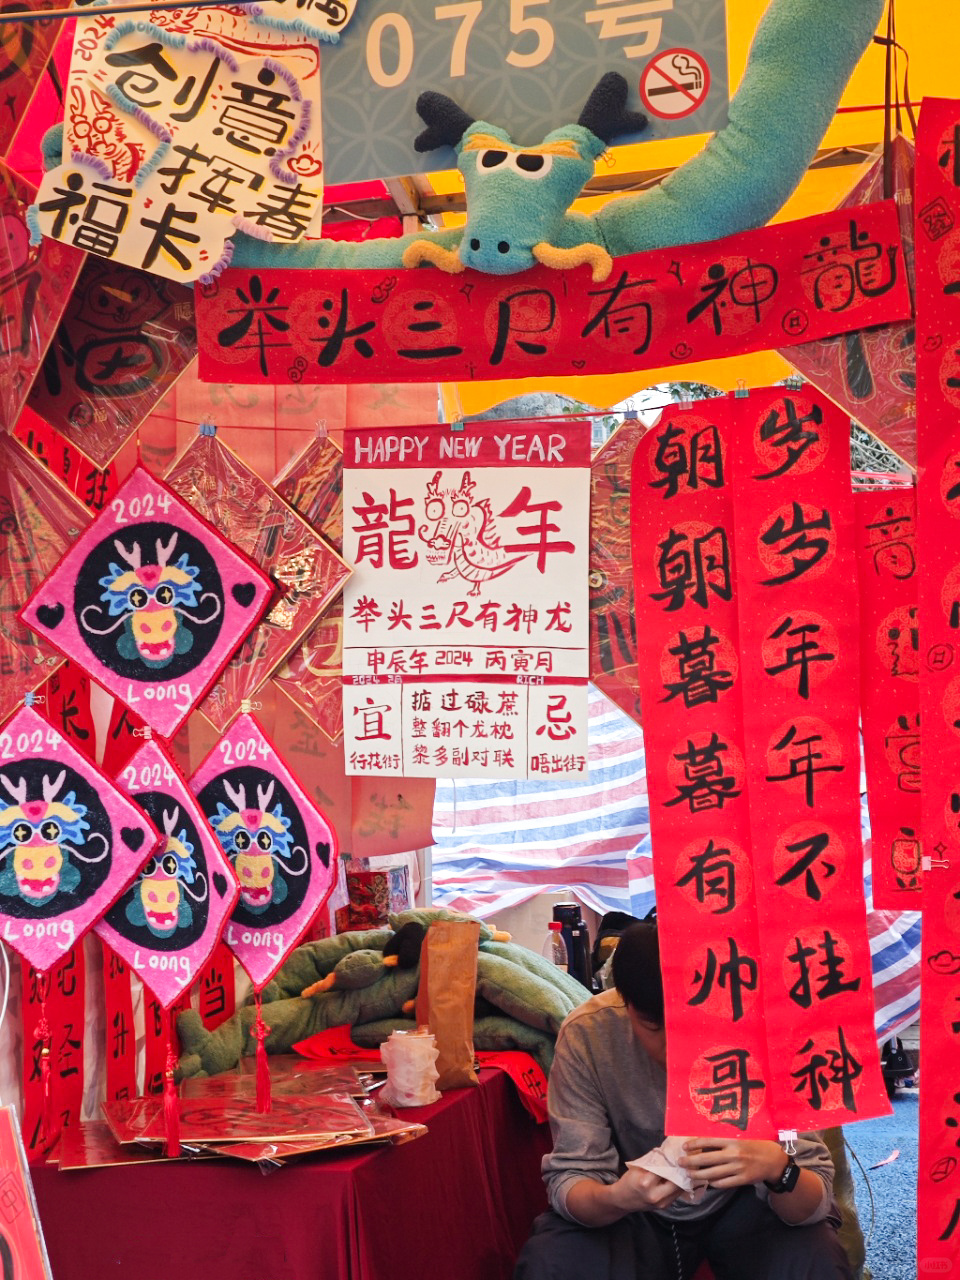 075号
2024
创意
挥春
福卡
举头三尺有神龍
HAPPY NEW YEAR
龍年
举头三尺有神龙
申辰年 2024 丙寅月
2024 2月 RICH
宜
行花街
掂过碌蔗
整翻个龙枕
黎多副对联
忌
唔出街
朝朝暮暮有帅哥
岁岁年年不挂科
2024
Loong
2024
Loong
2024
Loong
2024
Loong
小红书